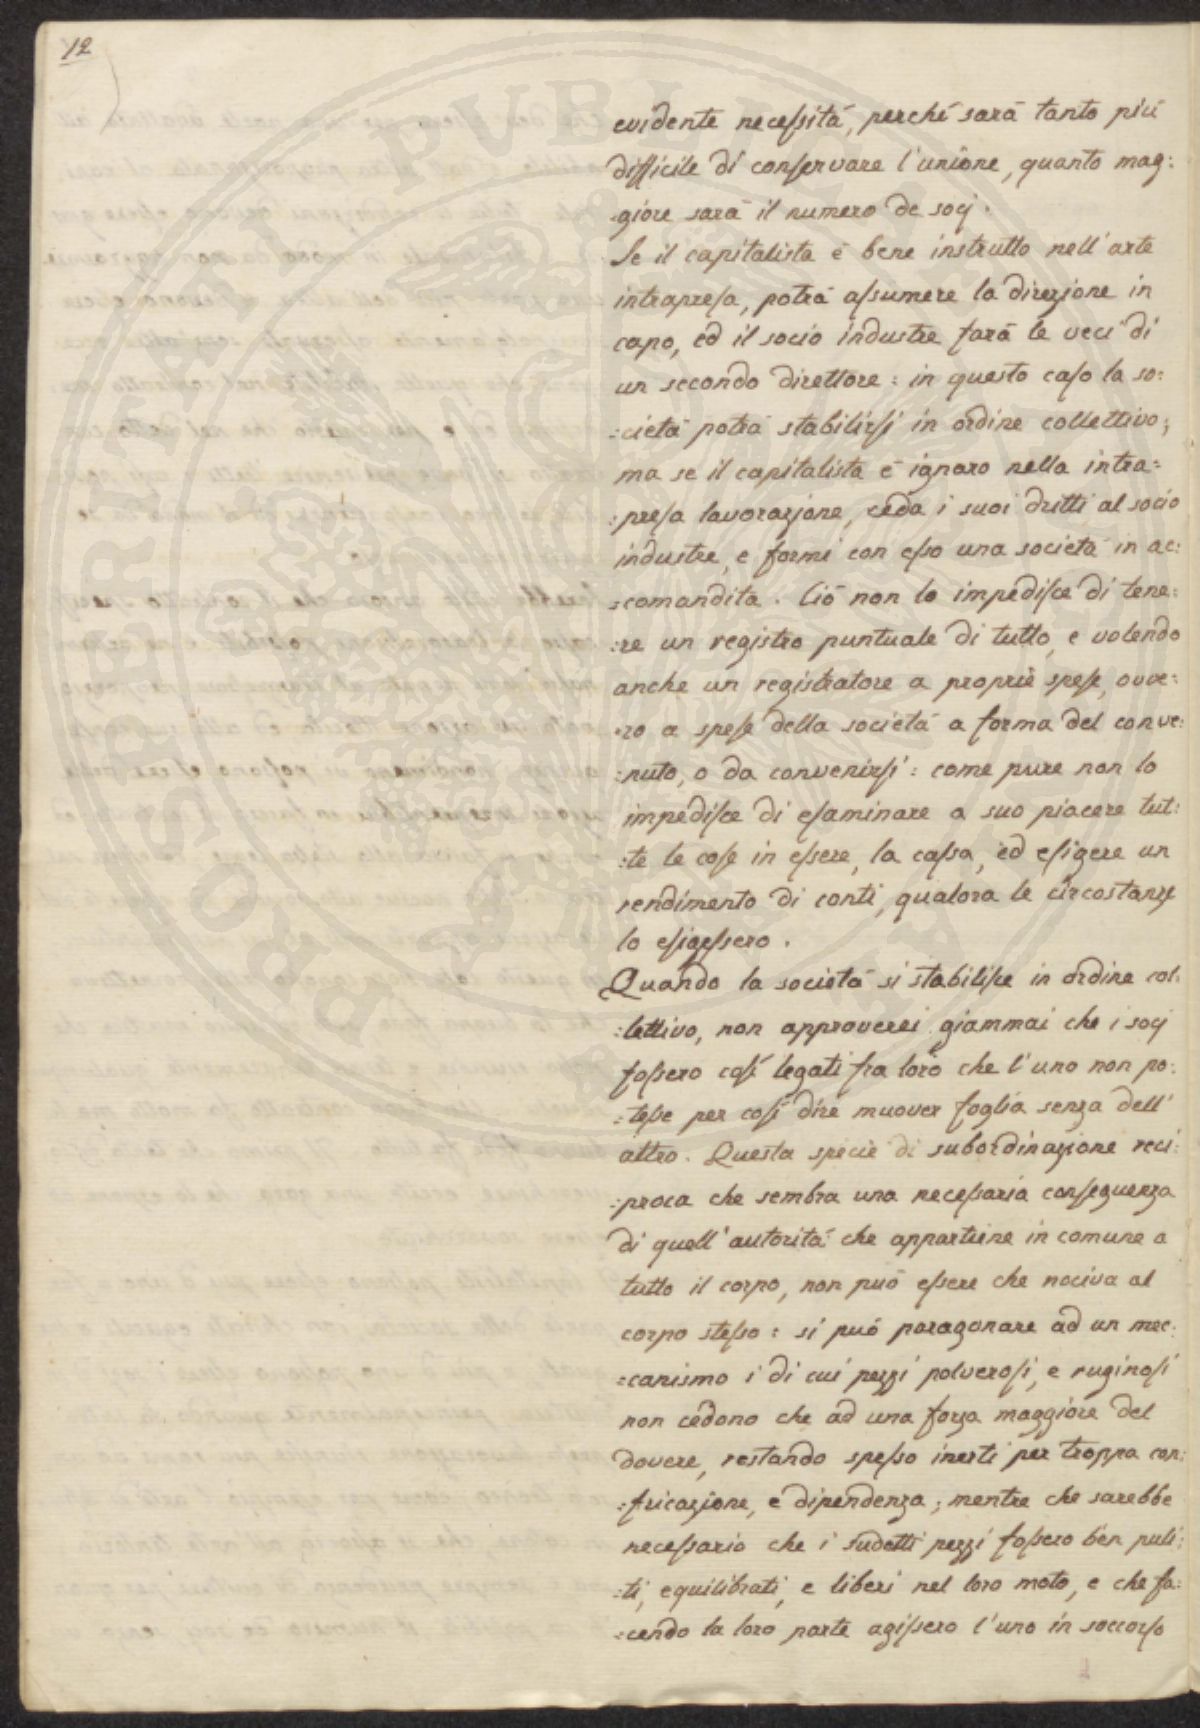 12
evidente necessità, perché sarà tanto più
difficile di conservare l'unione, quanto mag:
:giore sarà il numero de socj.
Se il capitalista è bene instrutto nell'arte
intrapresa, potrà assumere la direzione in
capo, ed il socio industre farà le veci di
un secondo direttore: in questo caso la so:
:cietà potrà stabilirsi in ordine collettivo;
ma se il capitalista è ignaro nella intra:
:presa lavorazione, ceda i suoi dritti al socio
industre, e formi con esso una società in ac:
:comandita. Ciò non lo impedisce di tene:
:re un registro puntuale di tutto, e volendo
anche un registratore a proprie spese, ovve:
:ro a spese della società a forma del conve:
:nuto, o da convenirsi: come pure non lo
impedisce di esaminare a suo piacere tut:
:te le cose in essere, la cassa, ed esigere un
rendimento di conti, qualora le circostanze
lo esigessero.
Quando la società si stabilisce in ordine col:
:lettivo, non approverei giammai che i socj
fossero così legati fra loro che l'uno non po:
:tesse per così dire muover foglia senza dell'
altro. Questa specie di subordinazione reci:
:proca che sembra una necessaria conseguenza
di quell'autorità che appartiene in comune a
tutto il corpo, non può essere che nociva al
corpo stesso: si può paragonare ad un mec:
:canismo i di cui pezzi polverosi, e ruginosi
non cedono che ad una forza maggiore del
dovere, restando spesso inerti per troppa con:
:fricazione, e dipendenza; mentre che sarebbe
necessario che i sudetti pezzi fossero ben puli:
:ti, equilibrati, e liberi nel loro moto, e che fa:
:cendo la loro parte agissero l'uno in soccorso
PROSPERITATI PUBLICAE